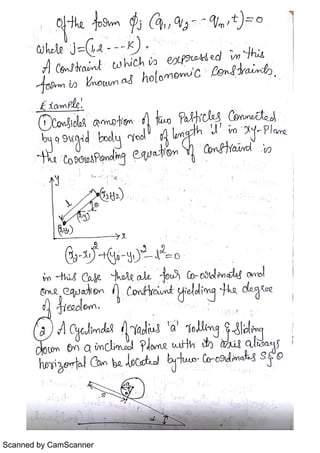 of the form ϕj (q1, q2 -- qn, t)=0
where j=(1,2 ---K).
A constraint which is expressed in this
form is known as holonomic constraints.
Example:
① Consider a motion of two Particles Connected
by a rigid body rod of length 'l' in xy-Plane
the corresponding equation of constraint is
y
(x2,y2)
l
(x,y)
(x1,y1)
x
(x2-x1)²+(y2-y1)²-l²=0
in this Case there are four Co-ordinates and
one equation of Constraint yielding the degree
of freedom.
② A Cylinder of radius 'a' rolling & Sliding
down on a inclined Plane with its axis always
horizontal Can be located by two Co-ordinates S & θ
a
S
α
Scanned by CamScanner